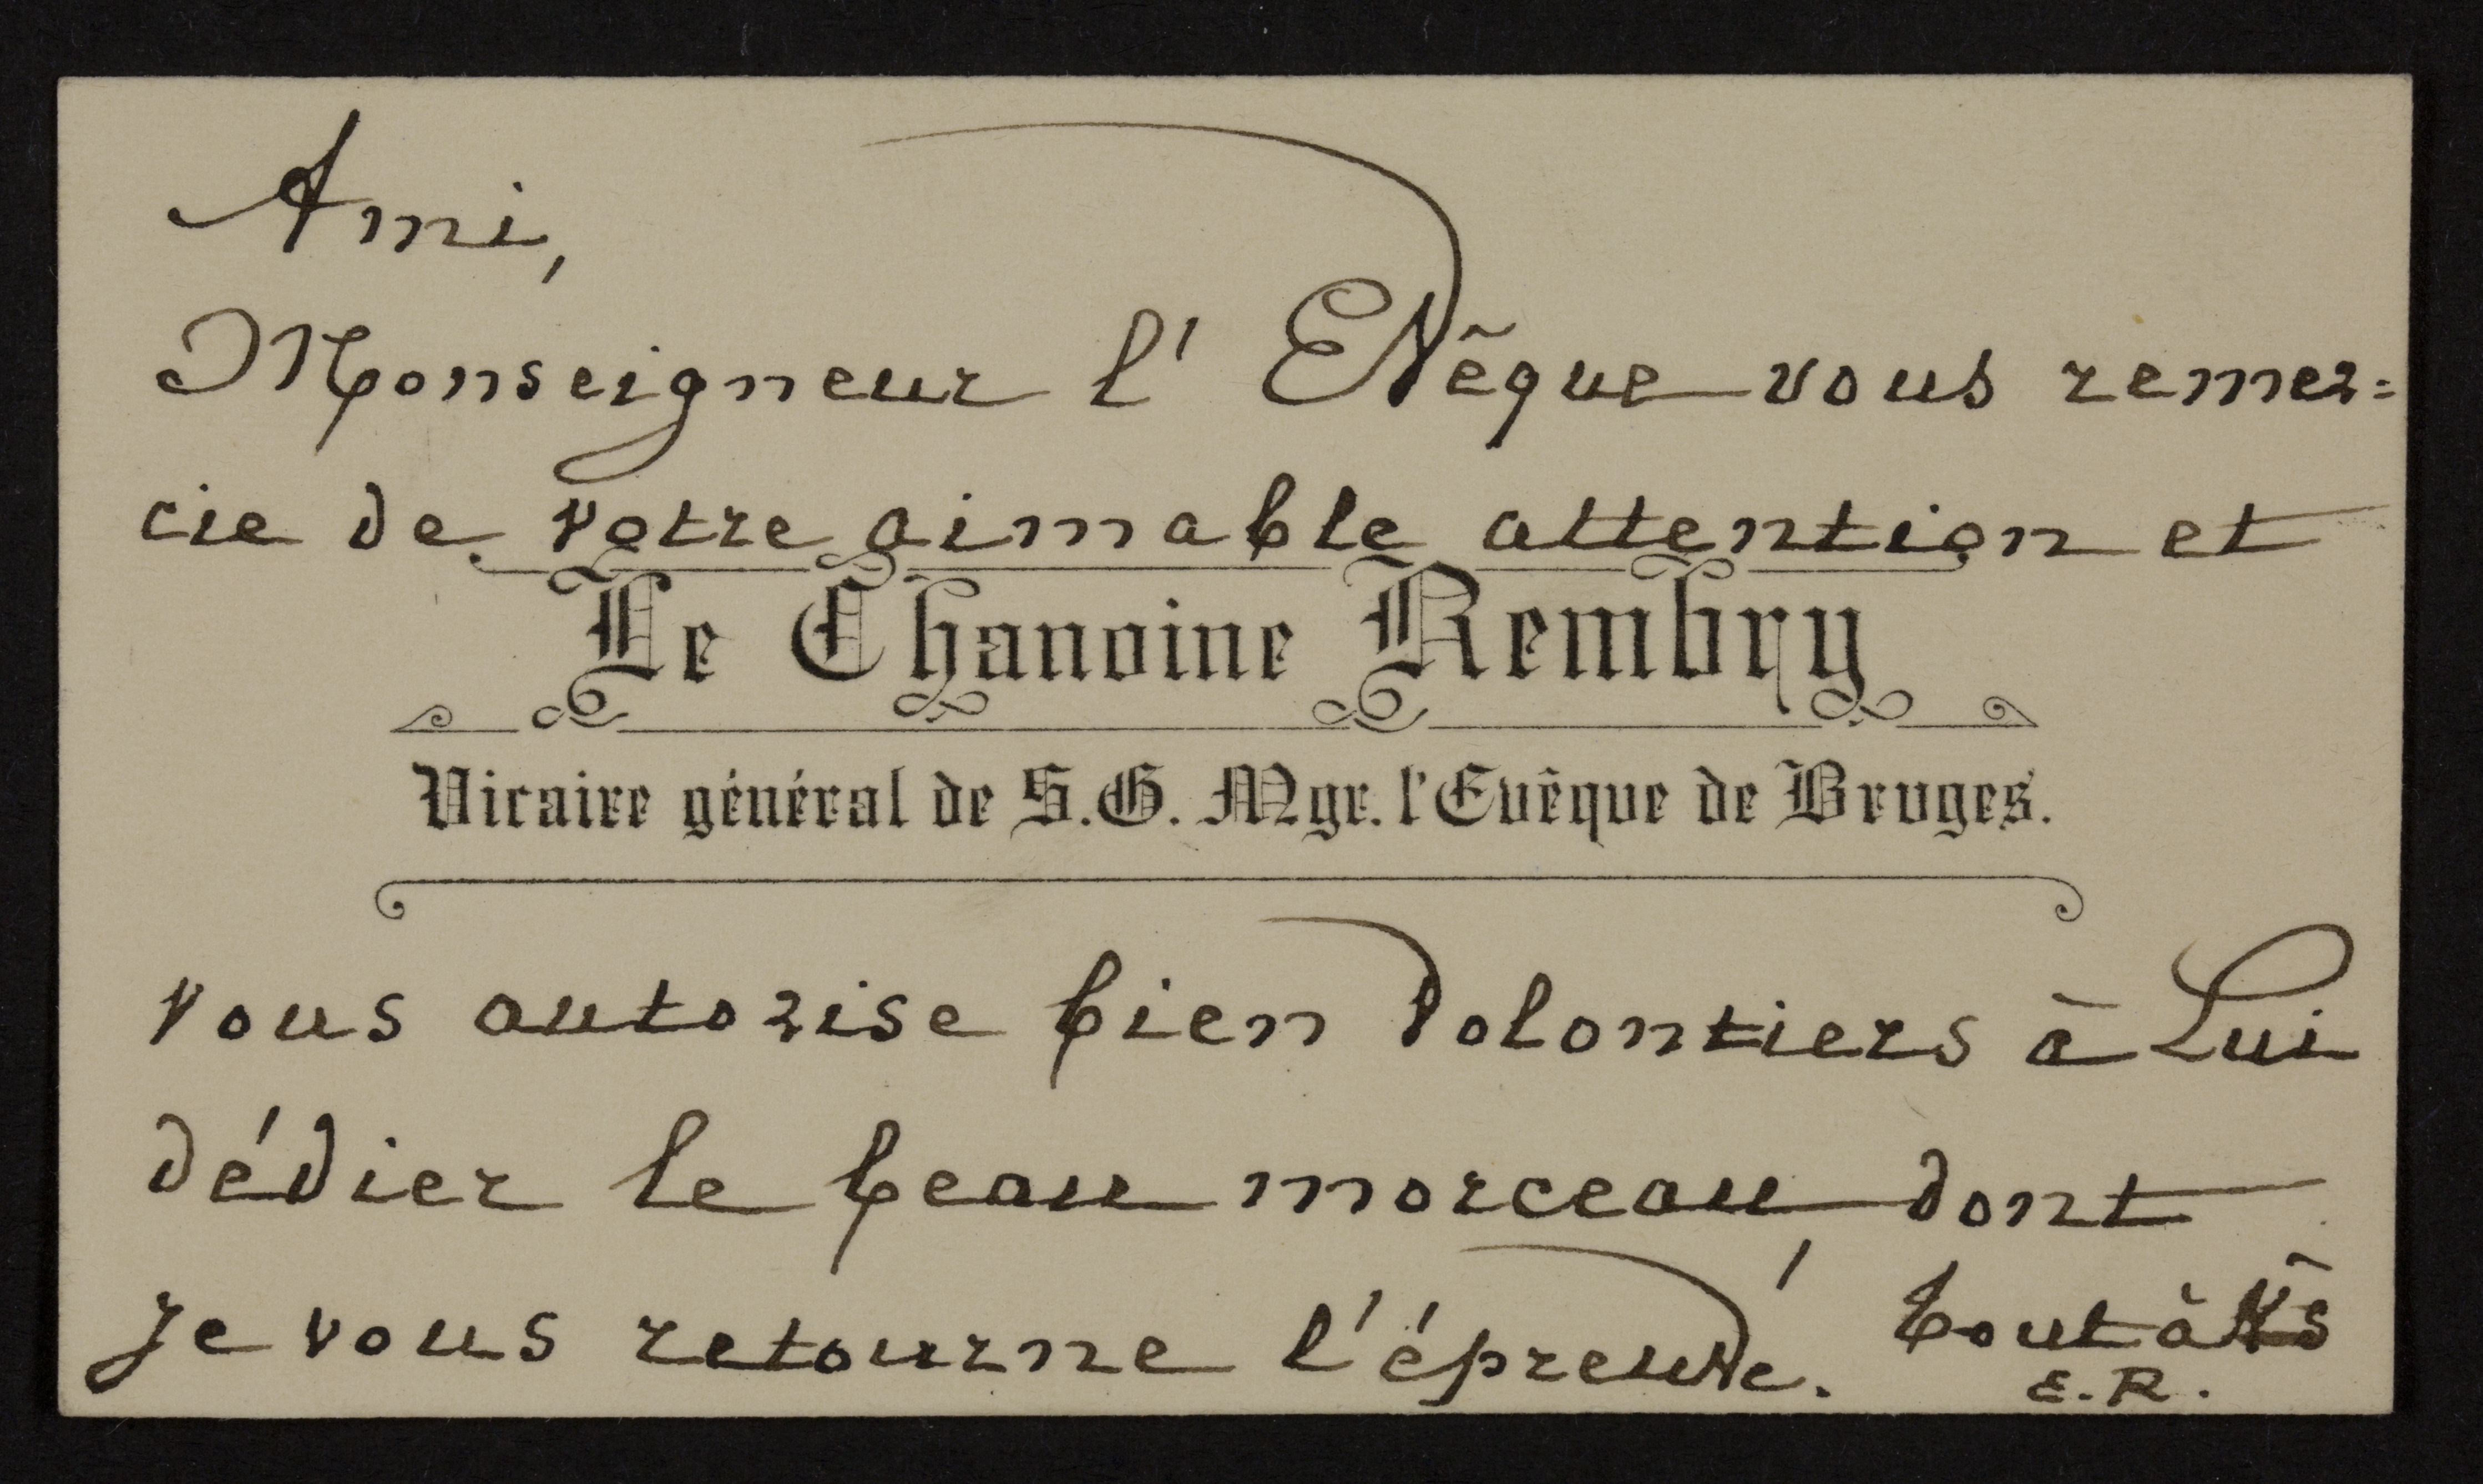 Ami,
Monseigneur l' Evêque vous remer=
cie de votre aimable attention et
Le Chanoine Rembry
Vicaire général de S.G. Mgr. l'Evêque de Bruges.
vous autorise bien volontiers à Lui
dédier le beau morceau, dont
je vous retourne l'épreuve. tout à Vs
E. R.